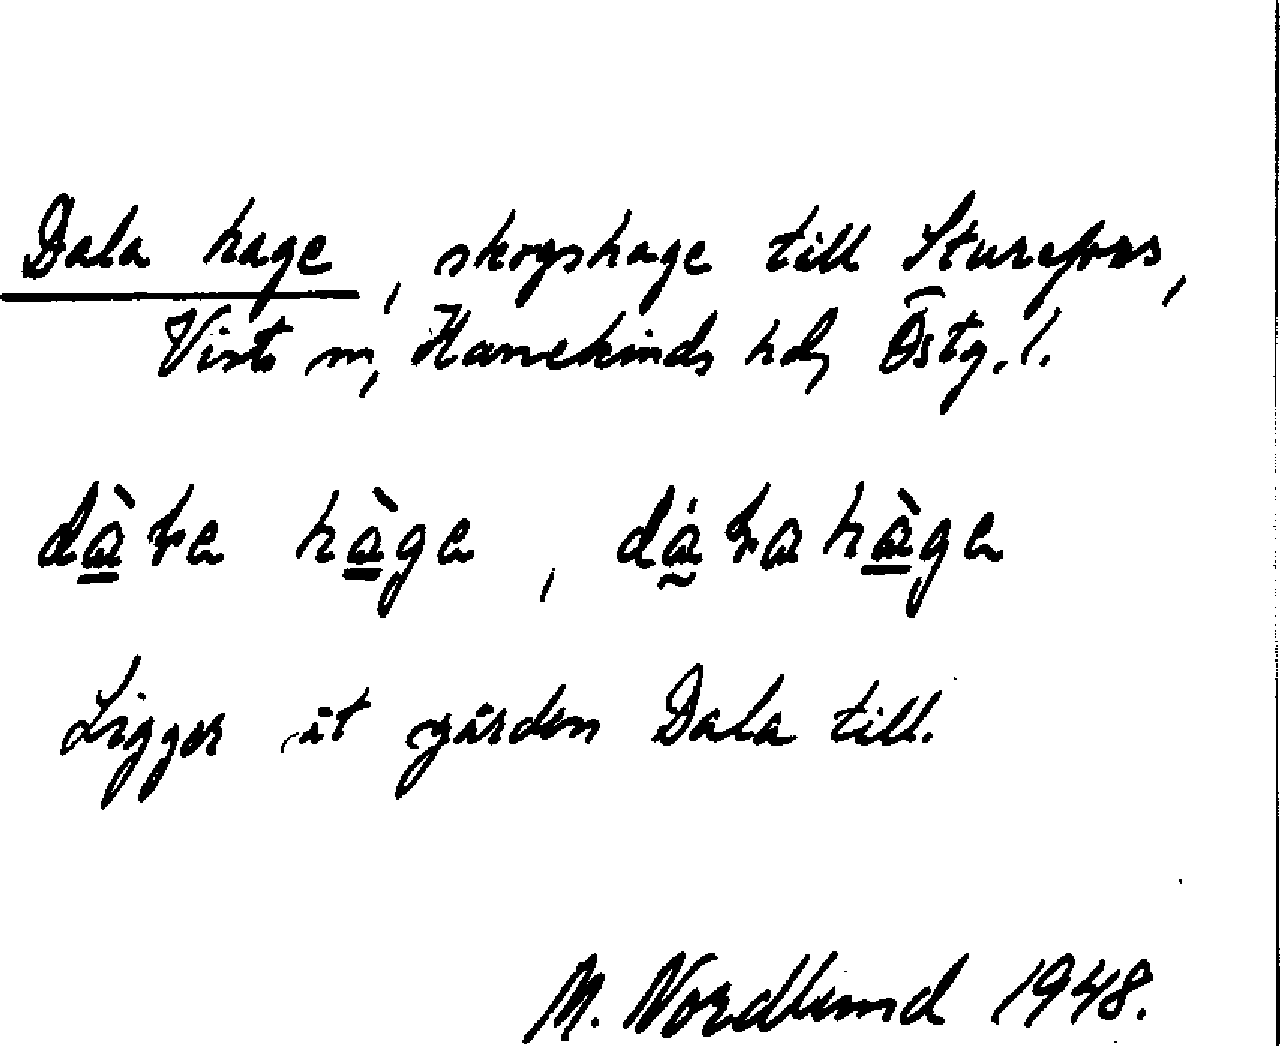 Dala hage, skogshage till Sturefors,
Vists sn, Hanekinds hd, Östg. l.
dàłe hàge, dáłahàge
Ligger åt gården Dala till.
M. Nordlund 1948.